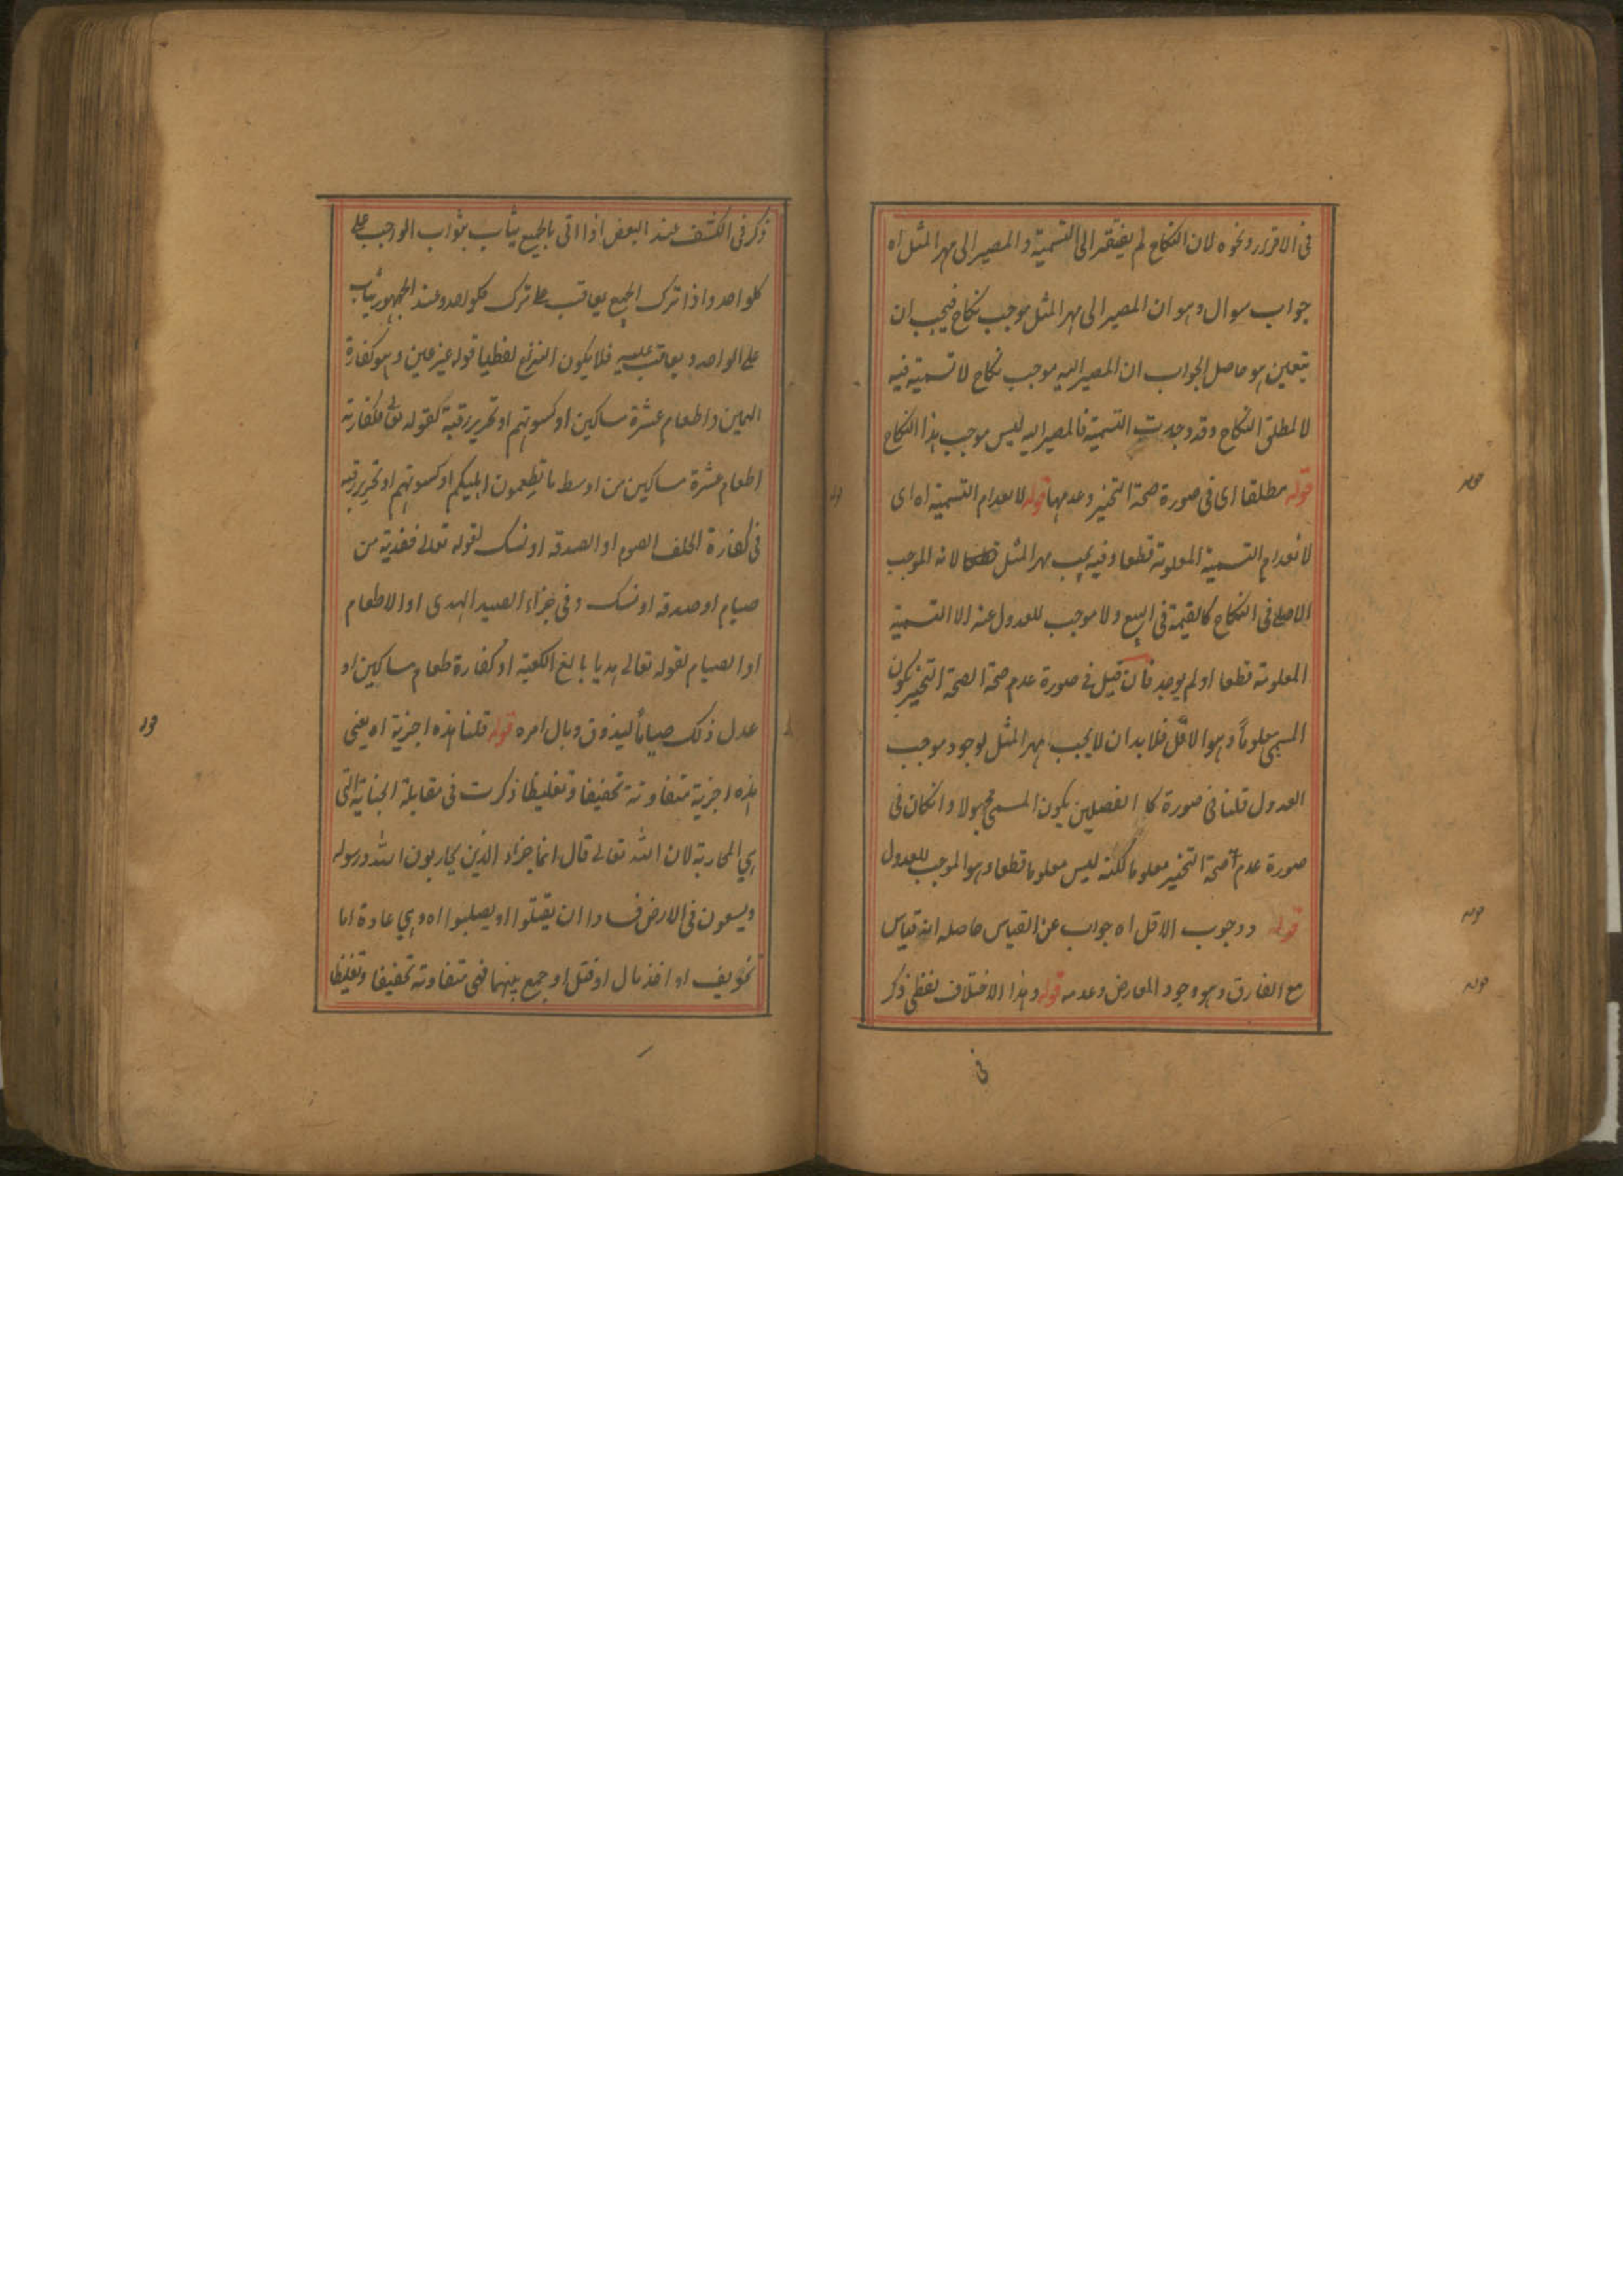 فى الاقرار ونحوه لان النكاح لم يفتقر الى التسمية والمصير الى مهر المثل اه
جواب سوال وهو ان المصير الى مهر المثل موجب نكاح فيجب ان
يتعين هو حاصل الجواب ان المصير اليه موجب نكاح لا تسمية فيه
لا لمطلق النكاح وقد وجدت التسمية فالمصير اليه ليس موجب هذا النكاح
قوله مطلقا اى فى صورة صحة التخيير وعدمها قوله لانعدام التسمية اه اى
لانعدام التسمية المعلومة قطعا وفيه يجب مهر المثل لانه الموجب
الاصلى فى النكاح كالقيمة فى البيع ولا موجب للعدول عنه الا التسمية
المعلومة قطعا ولم يوجد فان قيل فى صورة عدم صحة التخيير يكون
المسمى معلوماً وهو الاقل فلا بد ان لا يجب مهر المثل لوجود موجب
العدول قلنا فى صورة كلا الفصلين يكون المسمى مجهولا وانكان فى
صورة عدم صحة التخيير معلوما لكنه ليس معلوما قطعا وهو الموجب للعدول
قوله ووجوب الاقل اه جواب عن القياس حاصله انه قياس
مع الفارق وهو وجود المعارض وعدمه قوله وهذا الاختلاف لفظى ذكر
فى
ذكر فى الكشف عند البعض اذا اتى بالجميع يثاب بثواب الواجب على
كلواحد واذا ترك الجميع يعاقب على ترك كلواحد وعند الجمهور يثاب
على الواحد ويعاقب عليه فلا يكون النزاع لفظيا قوله غير عين وهو كفارة
اليمين واطعام عشرة مساكين او كسوتهم او تحرير رقبة كقوله تعالى فكفارته
اطعام عشرة مساكين من اوسط ما تطعمون اهليكم او كسوتهم او تحرير رقبة
فى كفارة الحلف الصوم او الصدقة او نسك لقوله تعالى ففدية من
صيام او صدقة او نسك وفى جزاء الصيد الهدى او الاطعام
او الصيام لقوله تعالى هديا بالغ الكعبة او كفارة طعام مساكين او
عدل ذلك صياماً ليذوق وبال امره قوله قلنا هذه اجزية اه يعنى
هذه اجزية متفاوتة تخفيفا وتغليظا ذكرت فى مقابلة الجناية التى
هي المحاربة لان الله تعالى قال انما جزاء الذين يحاربون الله ورسوله
ويسعون فى الارض فسادا ان يقتلوا او يصلبوا اه وهي عادة اما
تخويف او اخذ مال او قتل او جمع بينهما فهى متفاوتة تخفيفا وتغليظا